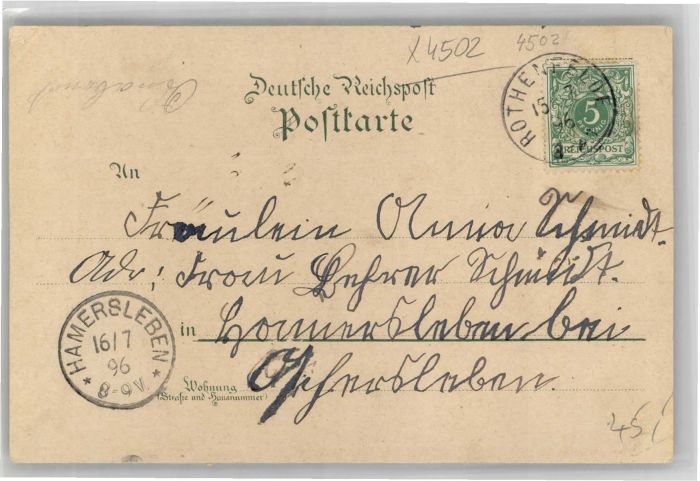 X4502 4502
Deutsche Reichspost
Postkarte
ROTHENFELDE
15
96
8 V.
5
REICHSPOST
An
Fräulein Anna Schmidt.
Adr: Frau Lehrer Schmidt.
in Hamersleben bei
Oschersleben.
Wohnung
(Straße und Hausnummer)
HAMERSLEBEN
16/7
96
8-9V.